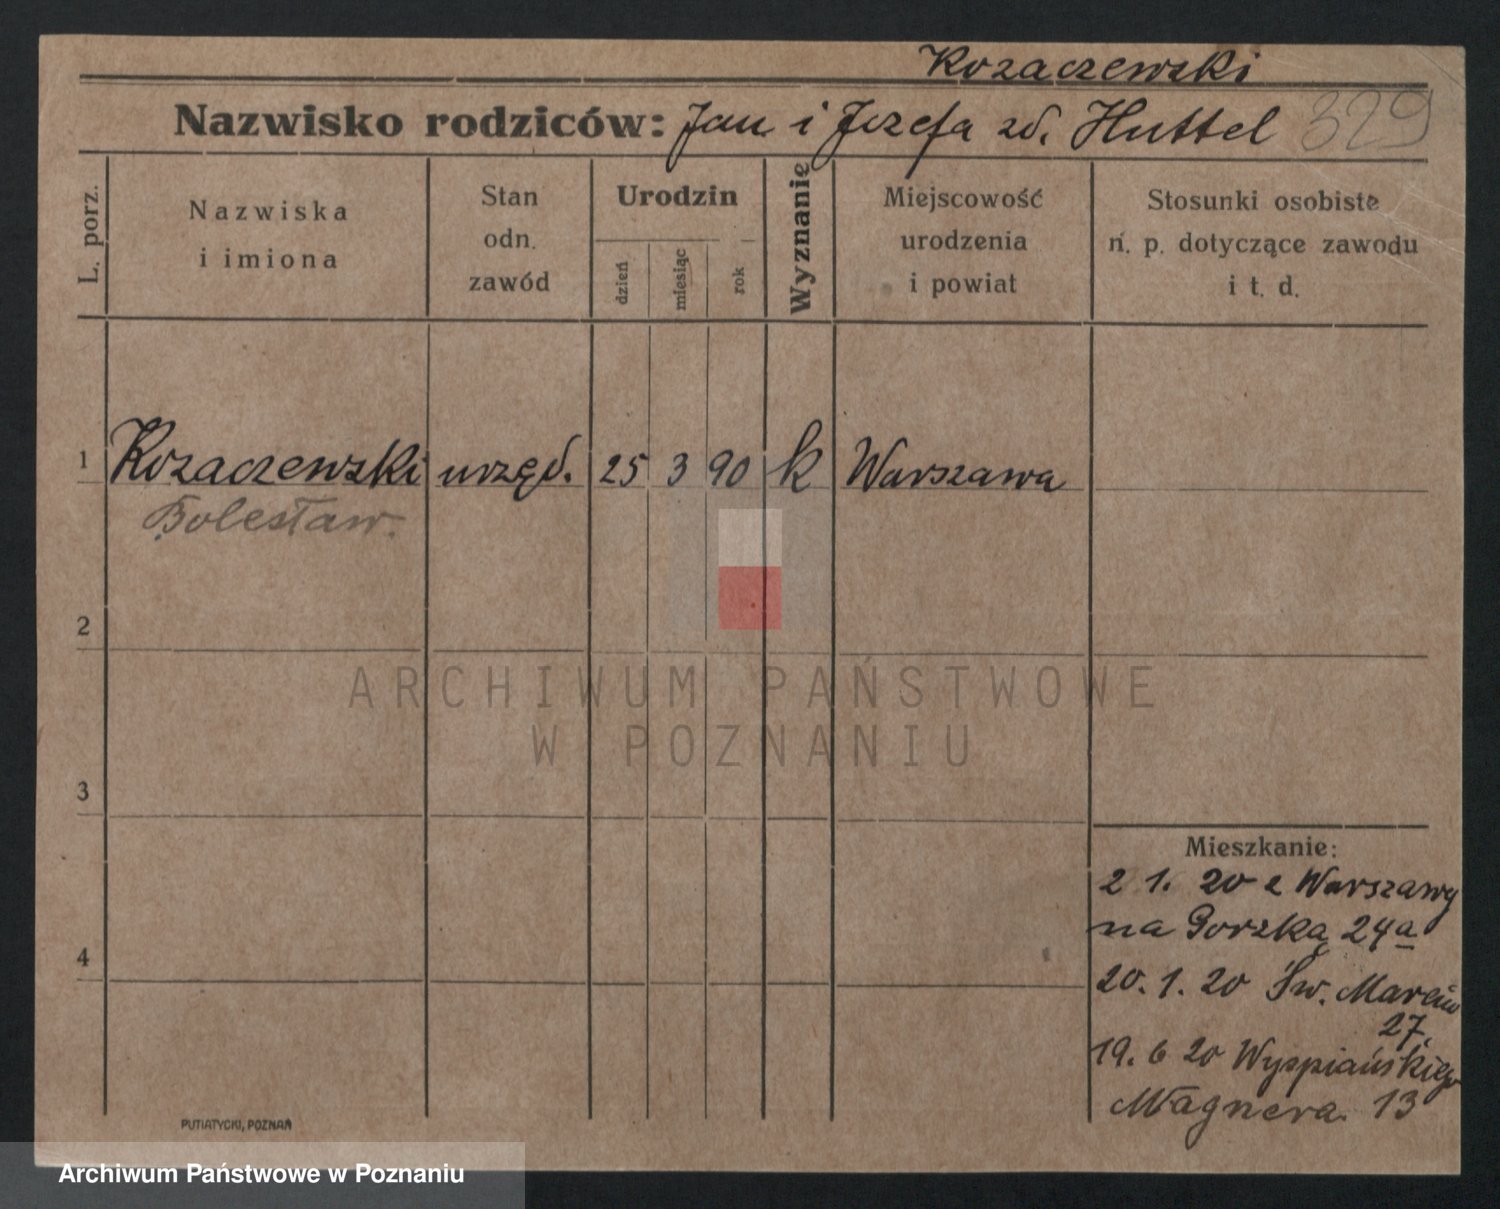 Kozaczewski
Nazwisko rodziców: Jan i Jozefa zd. Huttel 329
L. porz.
Nazwiska
i imiona
Stan
odn.
zawód
Urodzin
dzień
miesiąc
rok
Wyznanie
Miejscowość
urodzenia
i powiat
Stosunki osobiste
n. p. dotyczące zawodu
i t. d.
1 Kozaczewski urzęd. 25 3 90 k Warszawa
Bolesław.
2
3
4
ARCHIWUM PAŃSTWOWE
W POZNANIU
Mieszkanie:
2 1. 20 z Warszawy
na Gorzką 24a
20. 1. 20 Św. Marcin
27.
19. 6 20 Wyspiańskiego
Wagnera. 13
PUTIATYCKI, POZNAŃ
Archiwum Państwowe w Poznaniu